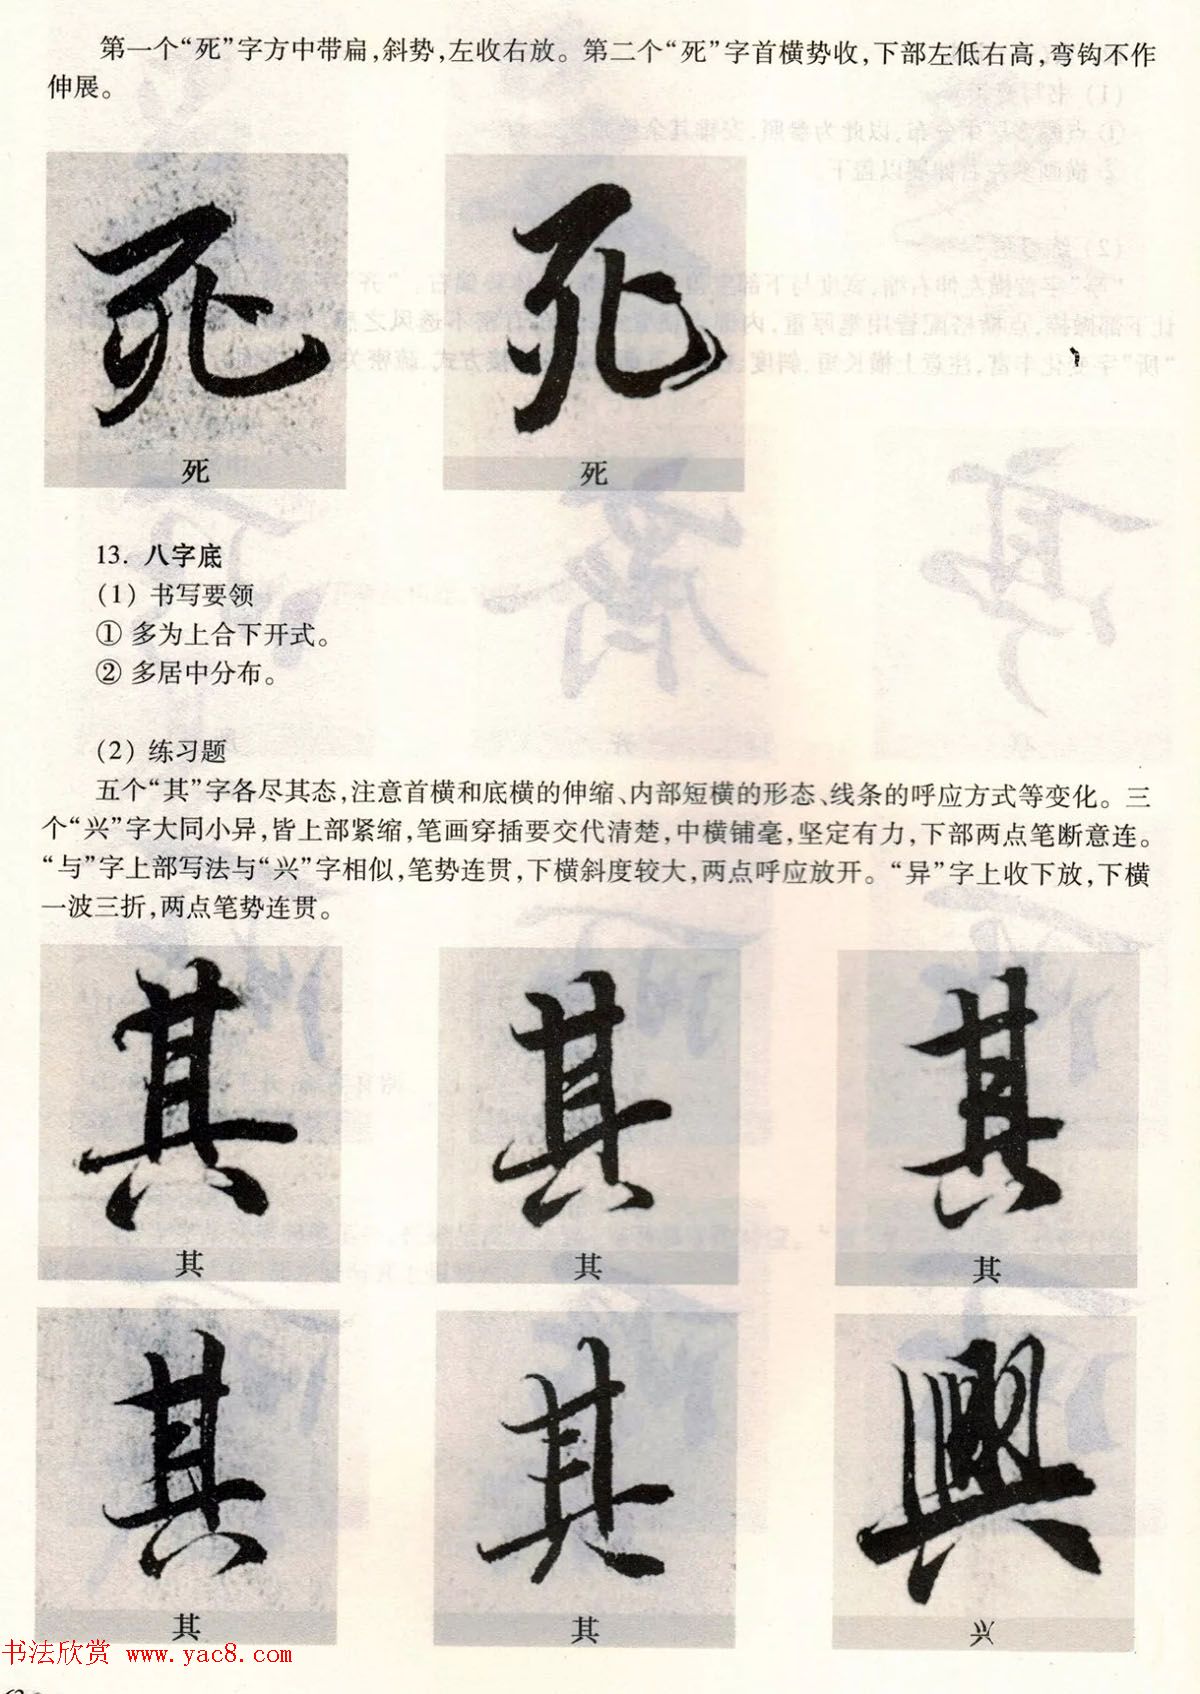 第一个“死”字方中带扁,斜势,左收右放。第二个“死”字首横势收,下部左低右高,弯钩不作
伸展。
死 死
死 死
13. 八字底
(1) 书写要领
① 多为上合下开式。
② 多居中分布。
(2) 练习题
五个“其”字各尽其态,注意首横和底横的伸缩、内部短横的形态、线条的呼应方式等变化。三
个“兴”字大同小异,皆上部紧缩,笔画穿插要交代清楚,中横铺毫,坚定有力,下部两点笔断意连。
“与”字上部写法与“兴”字相似,笔势连贯,下横斜度较大,两点呼应放开。“异”字上收下放,下横
一波三折,两点笔势连贯。
其 其 其
其 其 其
其 其 興
其 其 兴
书法欣赏 www.yac8.com